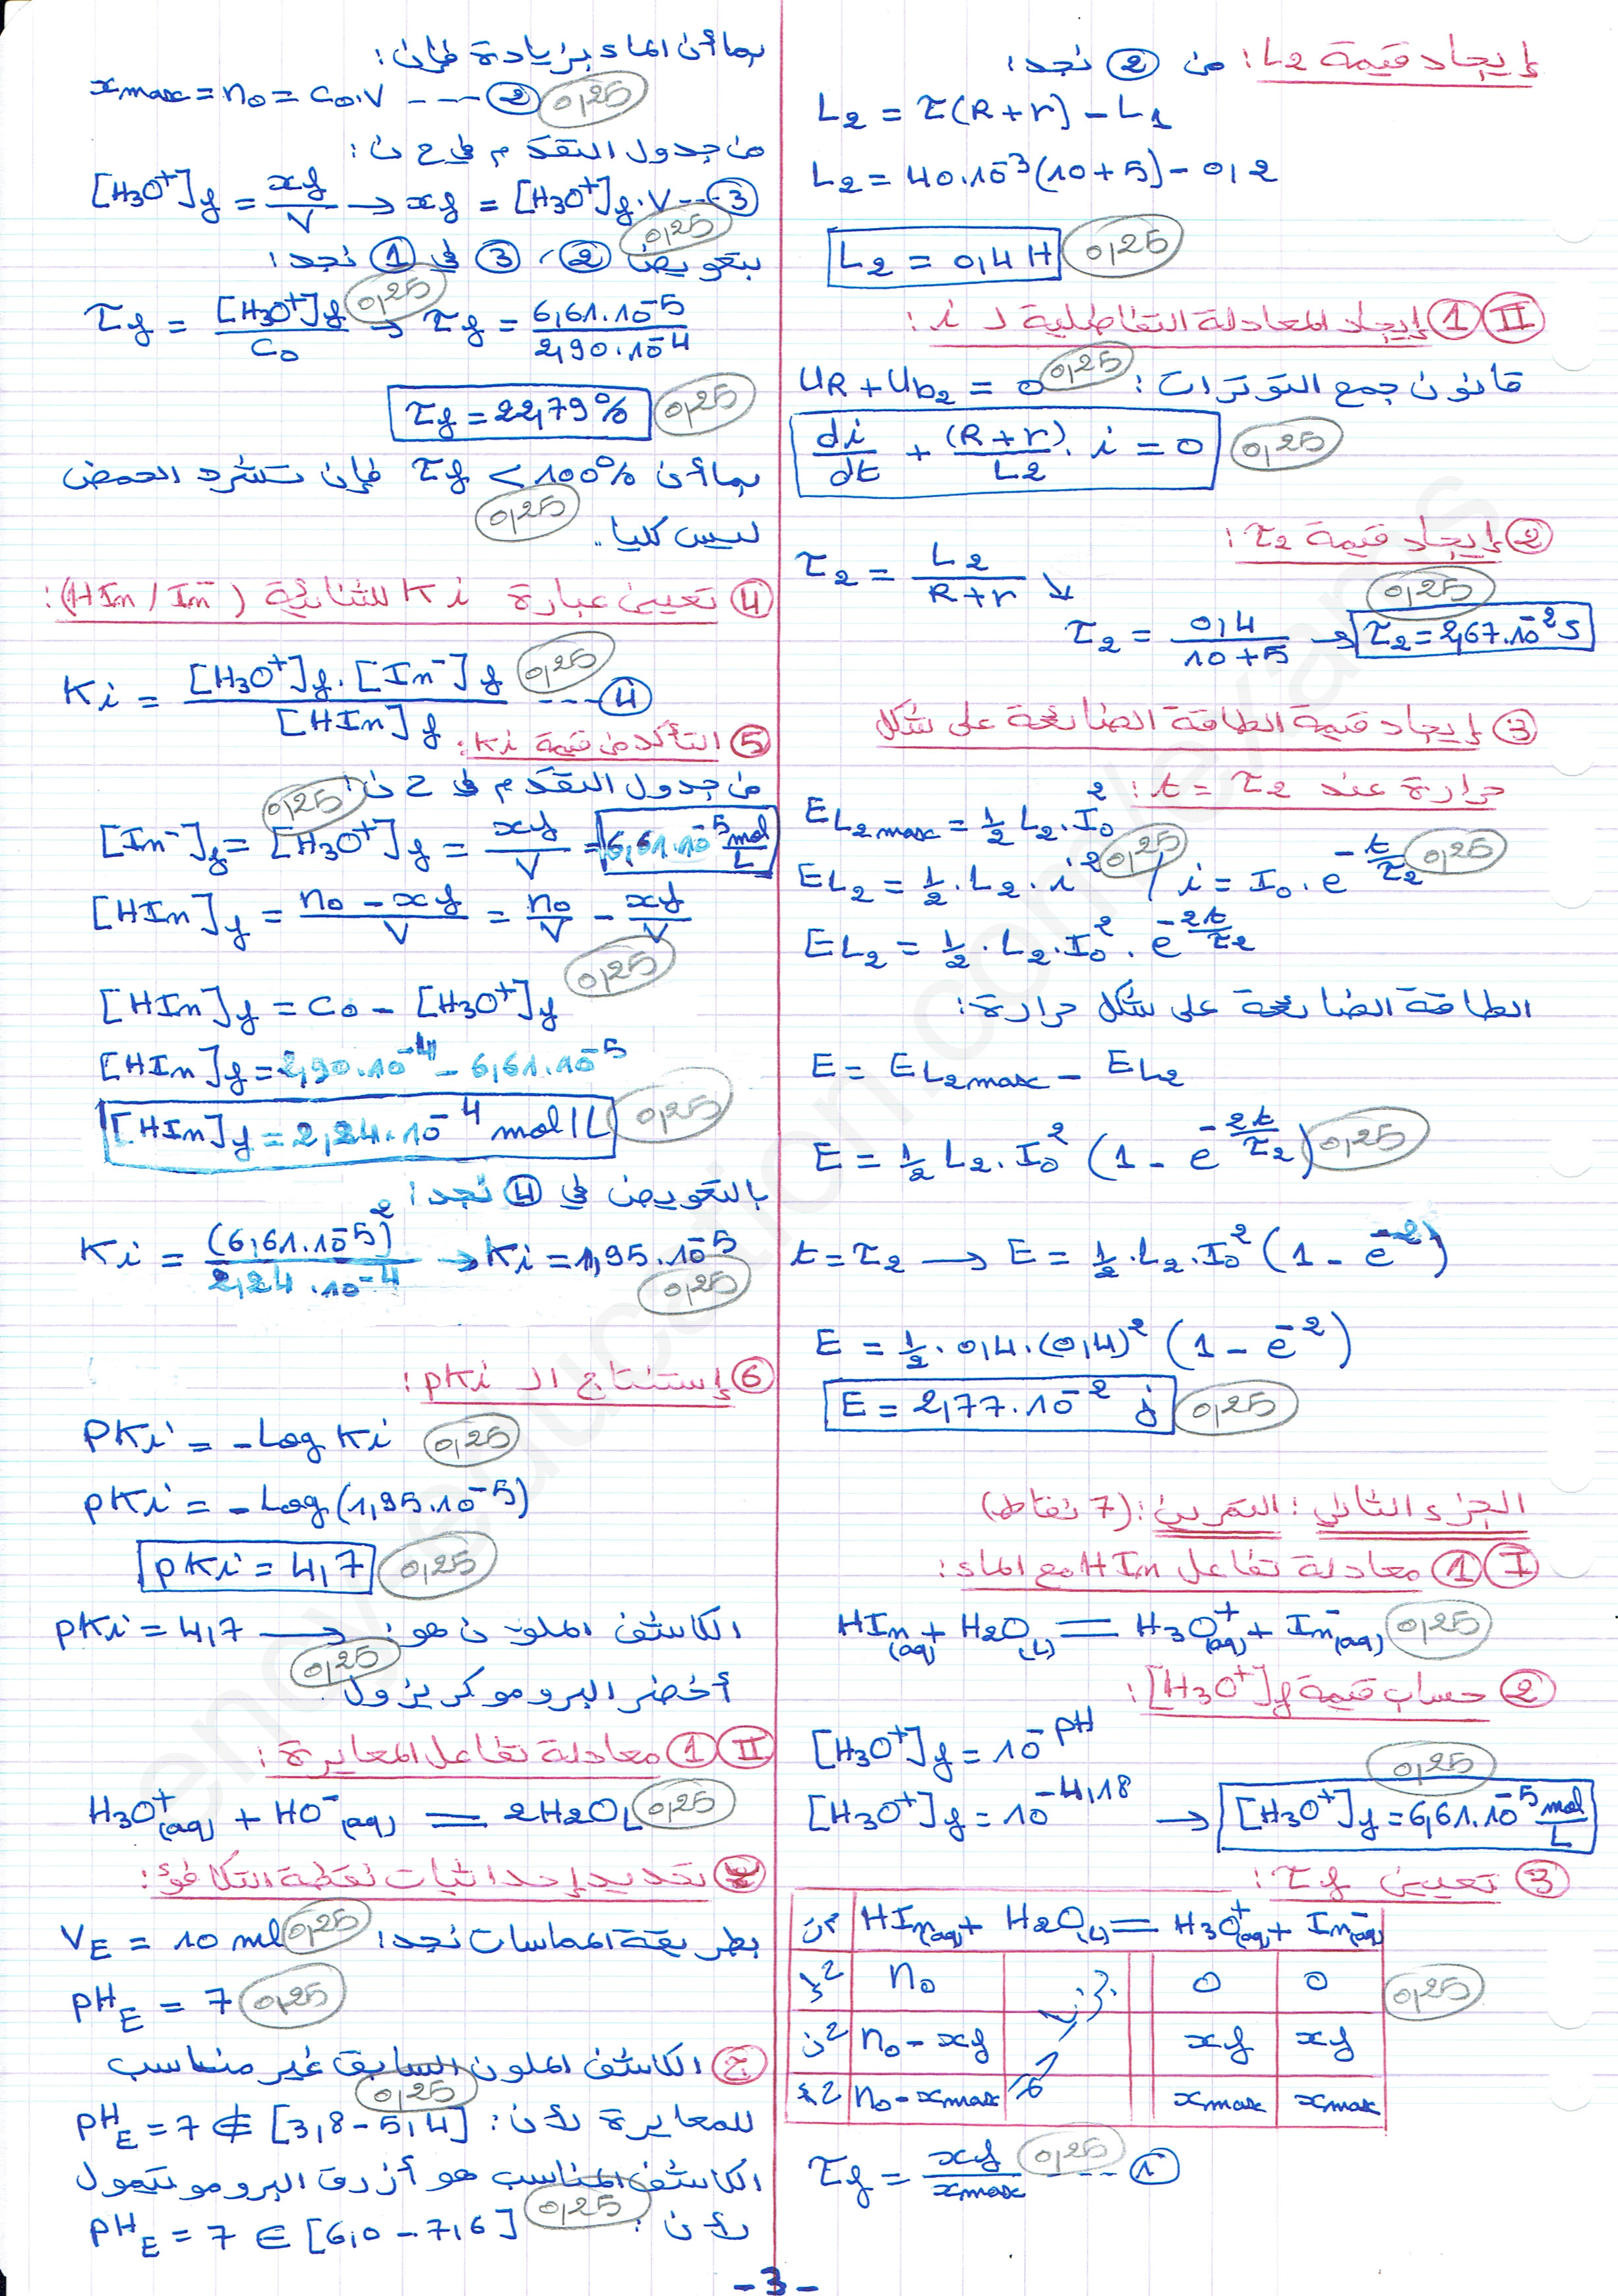 إيجاد قيمة L2: من ② نجد:
L2 = τ(R+r) - L1
L2 = 40.10^-3 (10+5) - 0,2
L2 = 0,4 H 0,25
II ① إيجاد المعادلة التفاضلية لـ i:
قانون جمع التوترات: UR + Ub2 = 0 0,25
di/dt + (R+r)/L2 . i = 0 0,25
② إيجاد قيمة τ2:
τ2 = L2/(R+r) ↘ 0,25
τ2 = 0,4/(10+5) → τ2 = 2,67.10^-2 s
③ إيجاد قيمة الطاقة الضائعة على شكل
حرارة عند t = τ2:
EL2max = 1/2 L2.I0^2
EL2 = 1/2.L2.i^2 0,25 / i = I0.e^(-t/τ2) 0,25
EL2 = 1/2.L2.I0^2.e^(-2t/τ2)
الطاقة الضائعة على شكل حرارة:
E = EL2max - EL2
E = 1/2 L2.I0^2 (1 - e^(-2t/τ2)) 0,25
t = τ2 → E = 1/2.L2.I0^2 (1 - e^-2)
E = 1/2.0,4.(0,4)^2 (1 - e^-2)
E = 2,77.10^-2 j 0,25
الجزء الثاني: التمرين: (7 نقاط)
I ① معادلة تفاعل HIn مع الماء:
HIn(aq) + H2O(L) = H3O+(aq) + In-(aq) 0,25
② حساب قيمة [H3O+]f:
[H3O+]f = 10^-pH 0,25
[H3O+]f = 10^-4,18 → [H3O+]f = 6,61.10^-5 mol/L
③ تعيين τf:
HIn(aq) + H2O(L) = H3O+(aq) + In-(aq)
n0 0 0 0,25
n0 - xf xf xf
n0 - xmax xmax xmax
τf = xf/xmax 0,25 ---- ①
بما أن الماء بزيادة فإن:
xmax = n0 = c0.V ---- ② 0,25
من جدول التقدم في ح ن:
[H3O+]f = xf/V → xf = [H3O+]f.V --- ③
0,25
بتعويض ②، ③ في ① نجد:
τf = [H3O+]f/c0 0,25 → τf = 6,61.10^-5/2,90.10^-4
τf = 22,79% 0,25
بما أن τf < 100% فإن تشرد الحمض
ليس كليا. 0,25
④ تعيين عبارة Ki للثنائية (HIn/In-):
Ki = [H3O+]f.[In-]f/[HIn]f 0,25 ---- ④
⑤ التأكد من قيمة Ki:
من جدول التقدم في ح ن: 0,25
[In-]f = [H3O+]f = xf/V = 6,61.10^-5 mol/L
[HIn]f = (n0 - xf)/V = n0/V - xf/V
[HIn]f = c0 - [H3O+]f 0,25
[HIn]f = 2,90.10^-4 - 6,61.10^-5
[HIn]f = 2,24.10^-4 mol/L 0,25
بالتعويض في ④ نجد:
Ki = (6,61.10^-5)^2/2,24.10^-4 → Ki = 1,95.10^-5 0,25
⑥ إستنتاج الـ pKi:
PKi = -Log Ki 0,25
pKi = -Log(1,95.10^-5)
pKi = 4,7 0,25
pKi = 4,7 → الكاشف الملون هو:
أخضر البروموكريزول. 0,25
II ① معادلة تفاعل المعايرة:
H3O+(aq) + HO-(aq) = 2H2O L 0,25
تحديد إحداثيات نقطة التكافؤ:
بطريقة المماسات نجد: VE = 10 ml 0,25
pHE = 7 0,25
ج الكاشف الملون السابق غير مناسب
للمعايرة لأن: pHE = 7 ∉ [3,8 - 5,4] 0,25
الكاشف المناسب هو أزرق البروموتيمول
لأن: pHE = 7 ∈ [6,0 - 7,6] 0,25
-3-
ency-education.com/exams